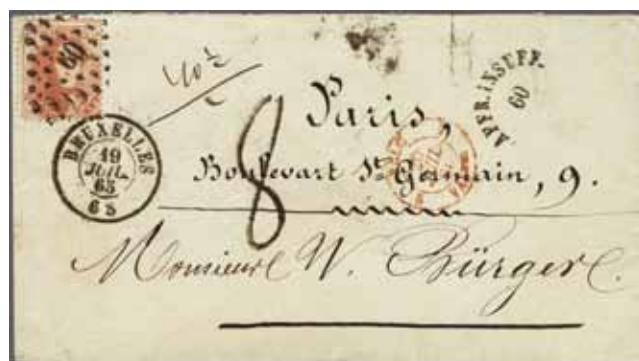 60
10½
AFFR. INSUFF.
60
BRUXELLES
19
JUIL.
65
6 S
8
Paris,
Boulevart St. Germain, 9.
Monsieur W. Bürger.